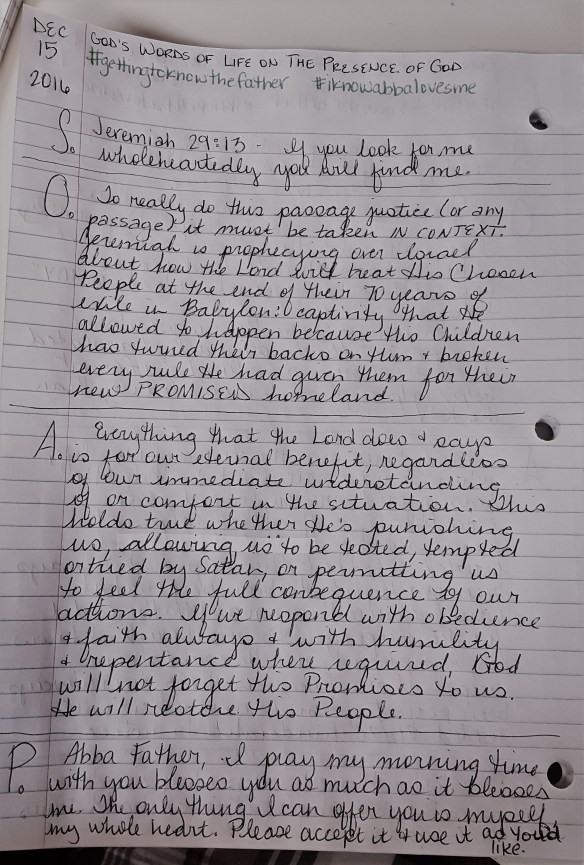 DEC
15
2016
GOD'S WORDS OF LIFE ON THE PRESENCE OF GOD
#gettingtoknowthefather #iknowabbalovesme
S. Jeremiah 29:13 - If you look for me
wholeheartedly you will find me.
O. To really do this passage justice (or any
passage) it must be taken IN CONTEXT.
Jeremiah is prophecying over Israel
about how the Lord will treat His Chosen
People at the end of their 70 years of
exile in Babylon: captivity that He
allowed to happen because His Children
has turned their backs on Him + broken
every rule He had given them for their
new PROMISED homeland.
A. Everything that the Lord does + says
is for our eternal benefit, regardless
of our immediate understanding
of or comfort in the situation. This
holds true whether He's punishing
us, allowing us to be tested, tempted
or tried by Satan, or permitting us
to feel the full consequence of our
actions. If we respond with obedience
+ faith always + with humility
+ repentance where required, God
will not forget His Promises to us.
He will restore His People.
P. Abba Father, I pray my morning time
with you blesses you as much as it blesses
me. The only thing I can offer you is myself,
my whole heart. Please accept it + use it as You'd
like.